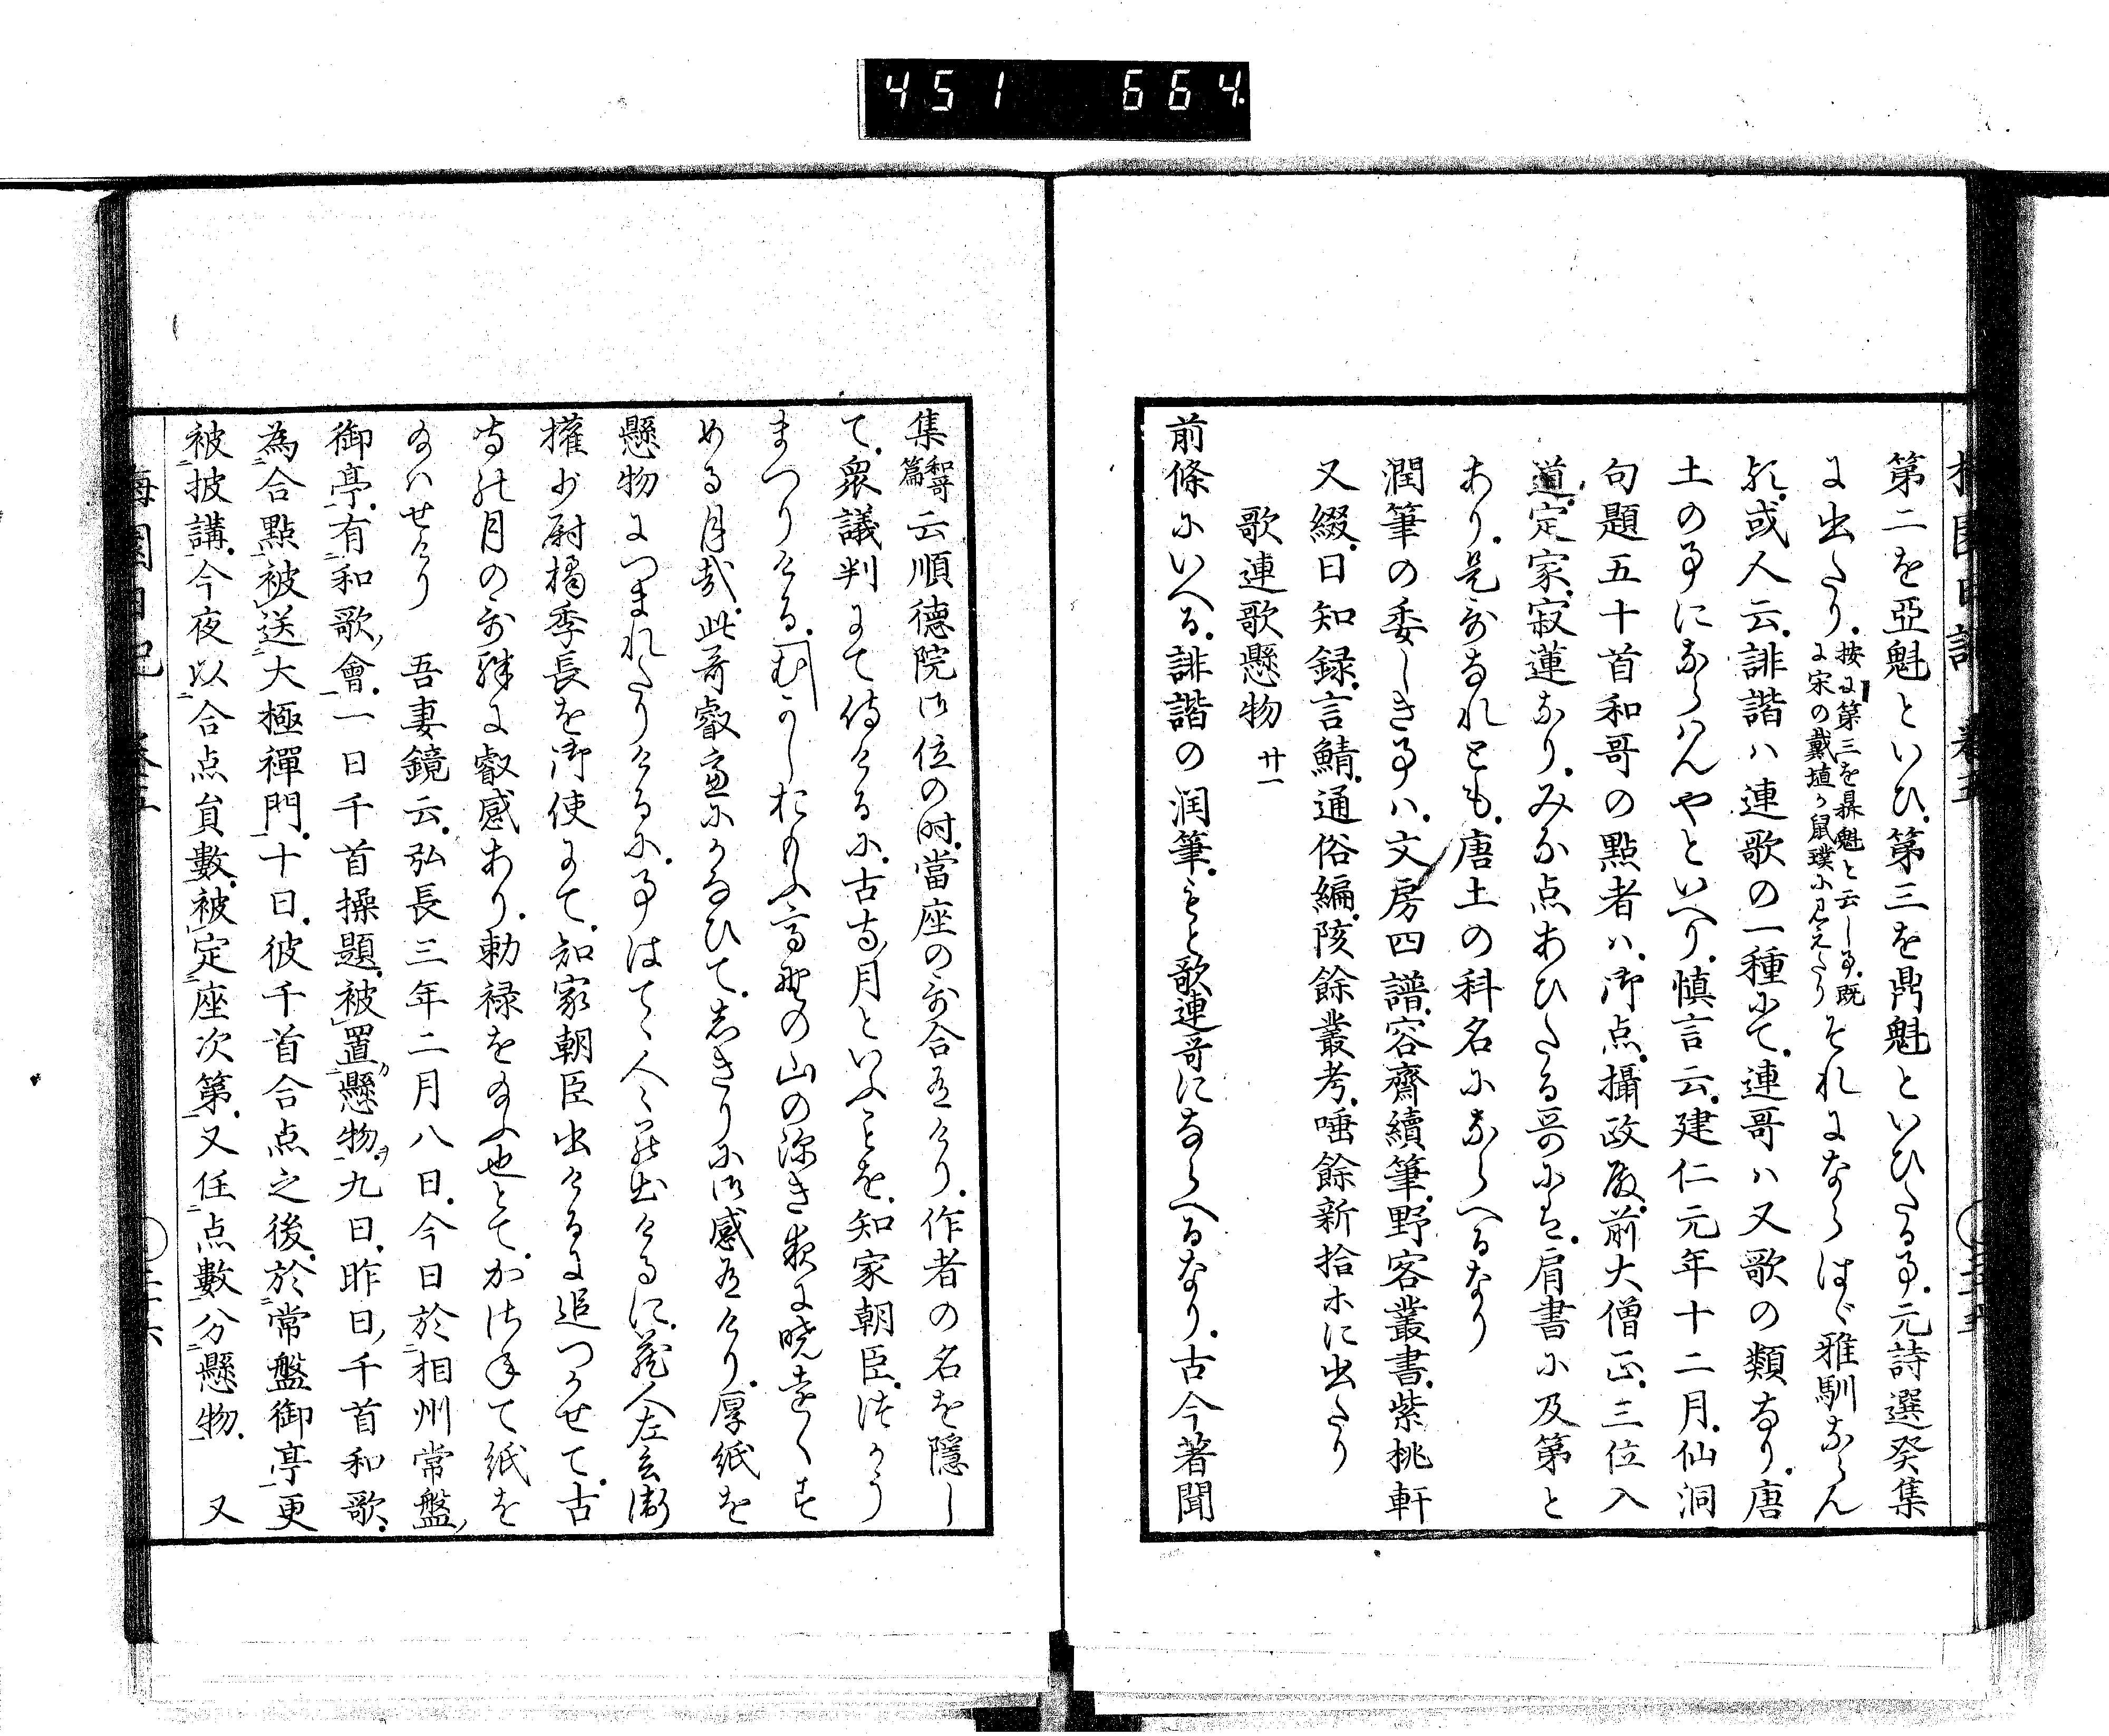 451 664
第二を亞魁といひ第三を鼎魁といひたる事元詩選癸集
に出たり按に第三を鼎魁と云し事既に宋の戴埴か鼠璞に見えたりそれにならはゞ雅馴ならん
或人云誹諧ハ連歌の一種にて連哥ハ又歌の類なり唐
土の事にならハんやといへり慎言云建仁元年十二月仙洞
句題五十首和哥の點者ハ御点攝政殿前大僧正三位入
道定家寂蓮なりみな点あひたる哥には肩書に及第と
あり是哥なれとも唐土の科名にならへるなり
潤筆の委しき事ハ文房四譜容齋續筆野客叢書紫桃軒
又綴日知録言鯖通俗編陔餘叢考唾餘新拾ホに出たり
歌連歌懸物 廿一
前條にいへる誹諧の潤筆もと歌連哥にならへるなり古今著聞
集和哥篇云順德院御位の時當座の哥合有けり作者の名を隠し
て衆議判にて侍けるに古寺月といふことを知家朝臣つかう
まつりけるむかしおもふ高野の山の深き夜に暁遠くす
める月哉此哥叡慮にかなひてしきりに御感有けり厚紙を
懸物につまれたりけるに事はてゝ人々罷出けるに蔵人左玄衛
權少尉橘季長を御使にて知家朝臣出けるに追つかせて古
寺の月の哥殊に叡感あり勅禄を給ふ也とてかさねて紙を
給ハせけり 吾妻鏡云弘長三年二月八日今日於相州常盤
御亭有和歌會一日千首操題被置懸物九日昨日千首和歌
為合點被送大極禪門十日彼千首合点之後於常盤御亭更
被披講今夜以合点員數被定座次第又任点數分懸物 又